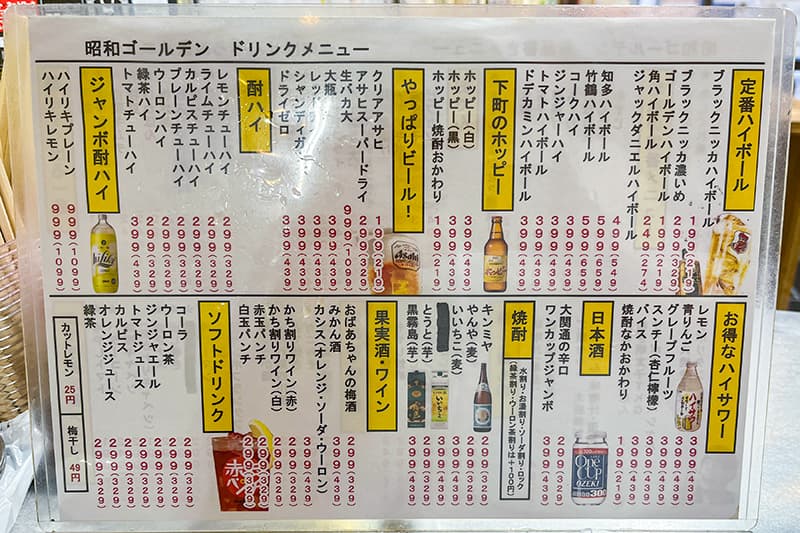 昭和ゴールデン ドリンクメニュー
定番ハイボール
ブラックニッカハイボール 199(219)
ブラックニッカ濃いめ
ゴールデンハイボール
角ハイボール
ジャックダニエルハイボール
知多ハイボール 599(659)
竹鶴ハイボール 599(659)
コークハイ 399(439)
ジンジャーハイ 399(439)
トマトハイボール 399(439)
ドデカミンハイボール 399(439)
下町のホッピー
ホッピー(白) 399(439)
ホッピー(黒) 399(439)
ホッピー焼酎おかわり 199(219)
やっぱりビール!
クリアアサヒ 199(219)
アサヒスーパードライ 299(329)
生バカ大 999(1099)
大瓶
レッドアイ 399(439)
シャンディガフ 399(439)
ドライゼロ 399(439)
酎ハイ
レモンチューハイ 299(329)
ライムチューハイ 299(329)
カルピスチューハイ 299(329)
プレーンチューハイ 299(329)
ウーロンハイ 299(329)
緑茶ハイ 299(329)
トマトチューハイ 399(439)
ジャンボ酎ハイ
ハイリキプレーン 999(1099)
ハイリキレモン 999(1099)
お得なハイサワー
レモン 399(439)
青りんご 399(439)
グレープフルーツ 399(439)
スンチー(杏仁檸檬) 399(439)
バイス 399(439)
焼酎なかおかわり 199(219)
日本酒
大関通の辛口
ワンカップジャンボ
焼酎
水割り・お湯割り・ソーダ割り・ロック
(緑茶割り・ウーロン茶割りは+100円)
キンミヤ 299(329)
やんや(麦) 299(329)
いいちこ(麦) 399(439)
とうと(芋) 299(329)
黒霧島(芋) 399(439)
果実酒・ワイン
おばあちゃんの梅酒
みかん酒
カシス(オレンジ・ソーダ・ウーロン)
かち割りワイン(赤) 299(329)
かち割りワイン(白) 299(329)
赤玉パンチ 299(329)
白玉パンチ 299(329)
ソフトドリンク
コーラ 299(329)
ウーロン茶 299(329)
ジンジャエール 299(329)
トマトジュース 299(329)
カルピス 299(329)
オレンジジュース 299(329)
緑茶 299(329)
カットレモン 25円
梅干し 49円